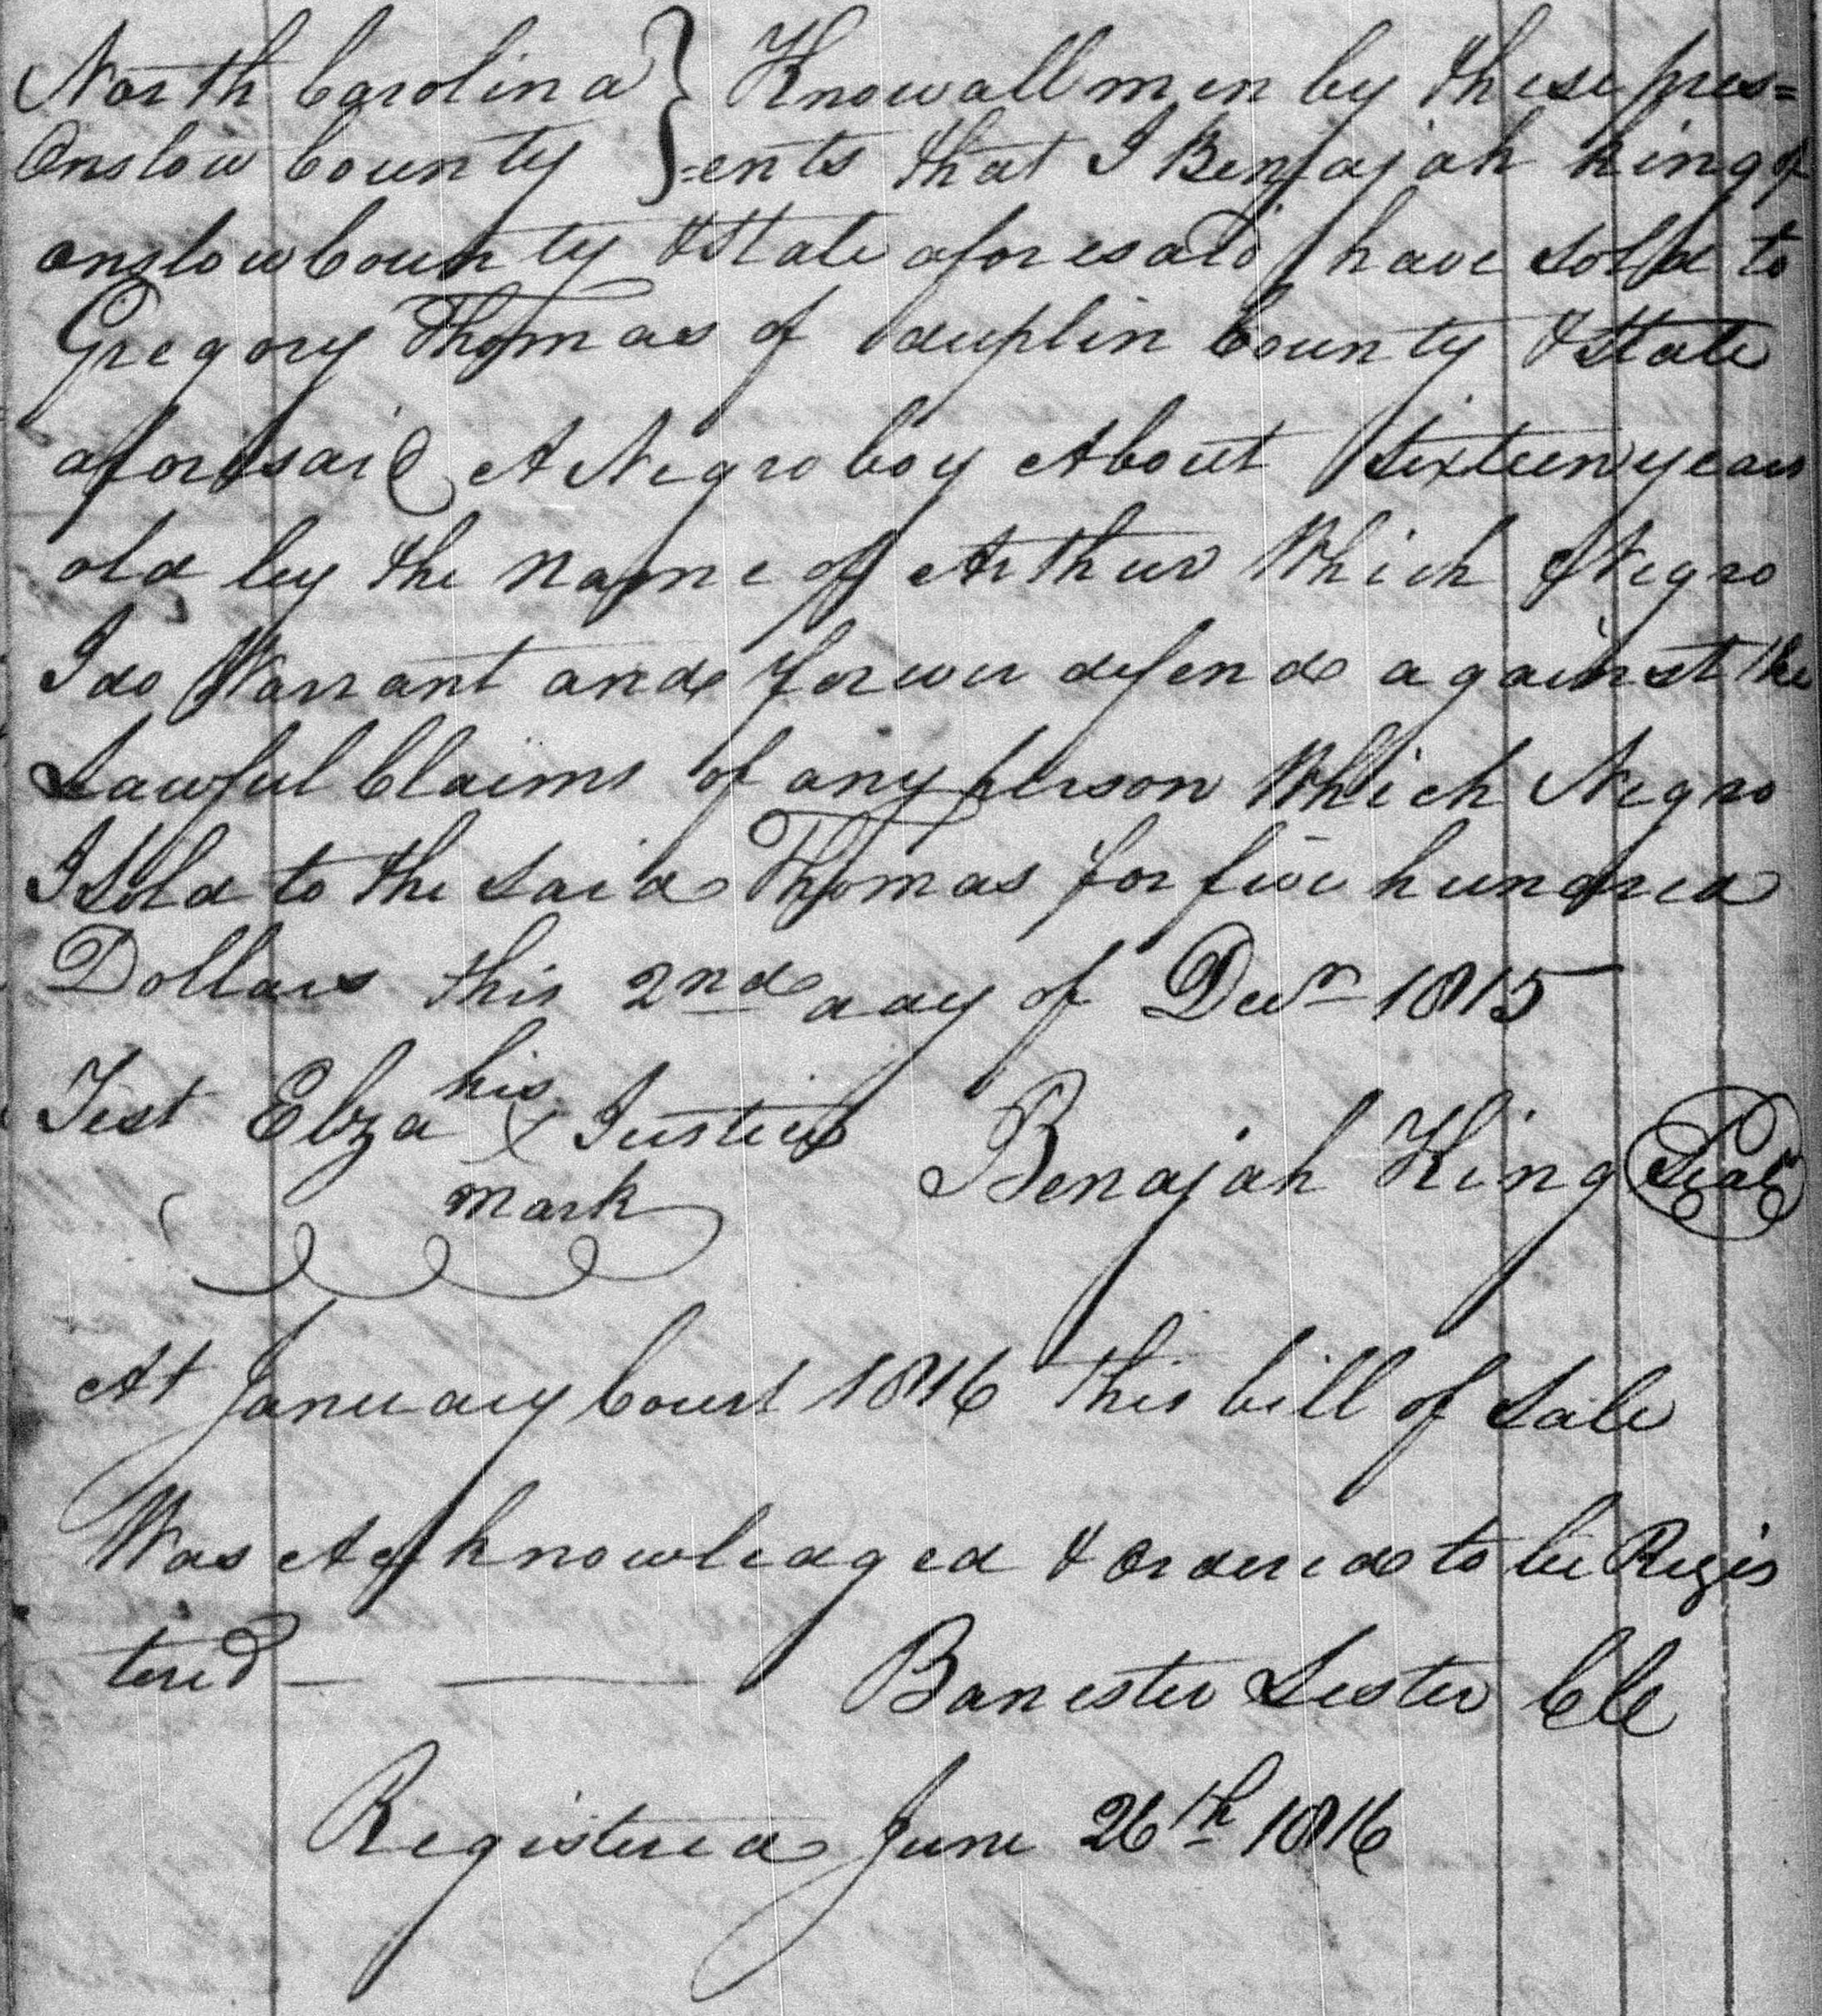 North Carolina } Know all men by these pres=
Onslow County } =ents that I Benjajah King of
onslow County & State aforesaid have sold to
Gregory Thomas of duplin County & State
aforesaid A Negro boy About Sixteen years
old by the Name of Arthur Which Negro
I do Warrant and forever defend against the
Lawful Claims of any person Which Negro
I Sold to the Said Thomas for five hundred
Dollars this 2nd day of Decr 1815
his
Test Elza X Justice Benajah King Seal
mark
At January Court 1816 this bill of Sale
Was Acknowledged & ordered to be Regis
tered — — Banester Lester Clk
Registered June 26th 1816